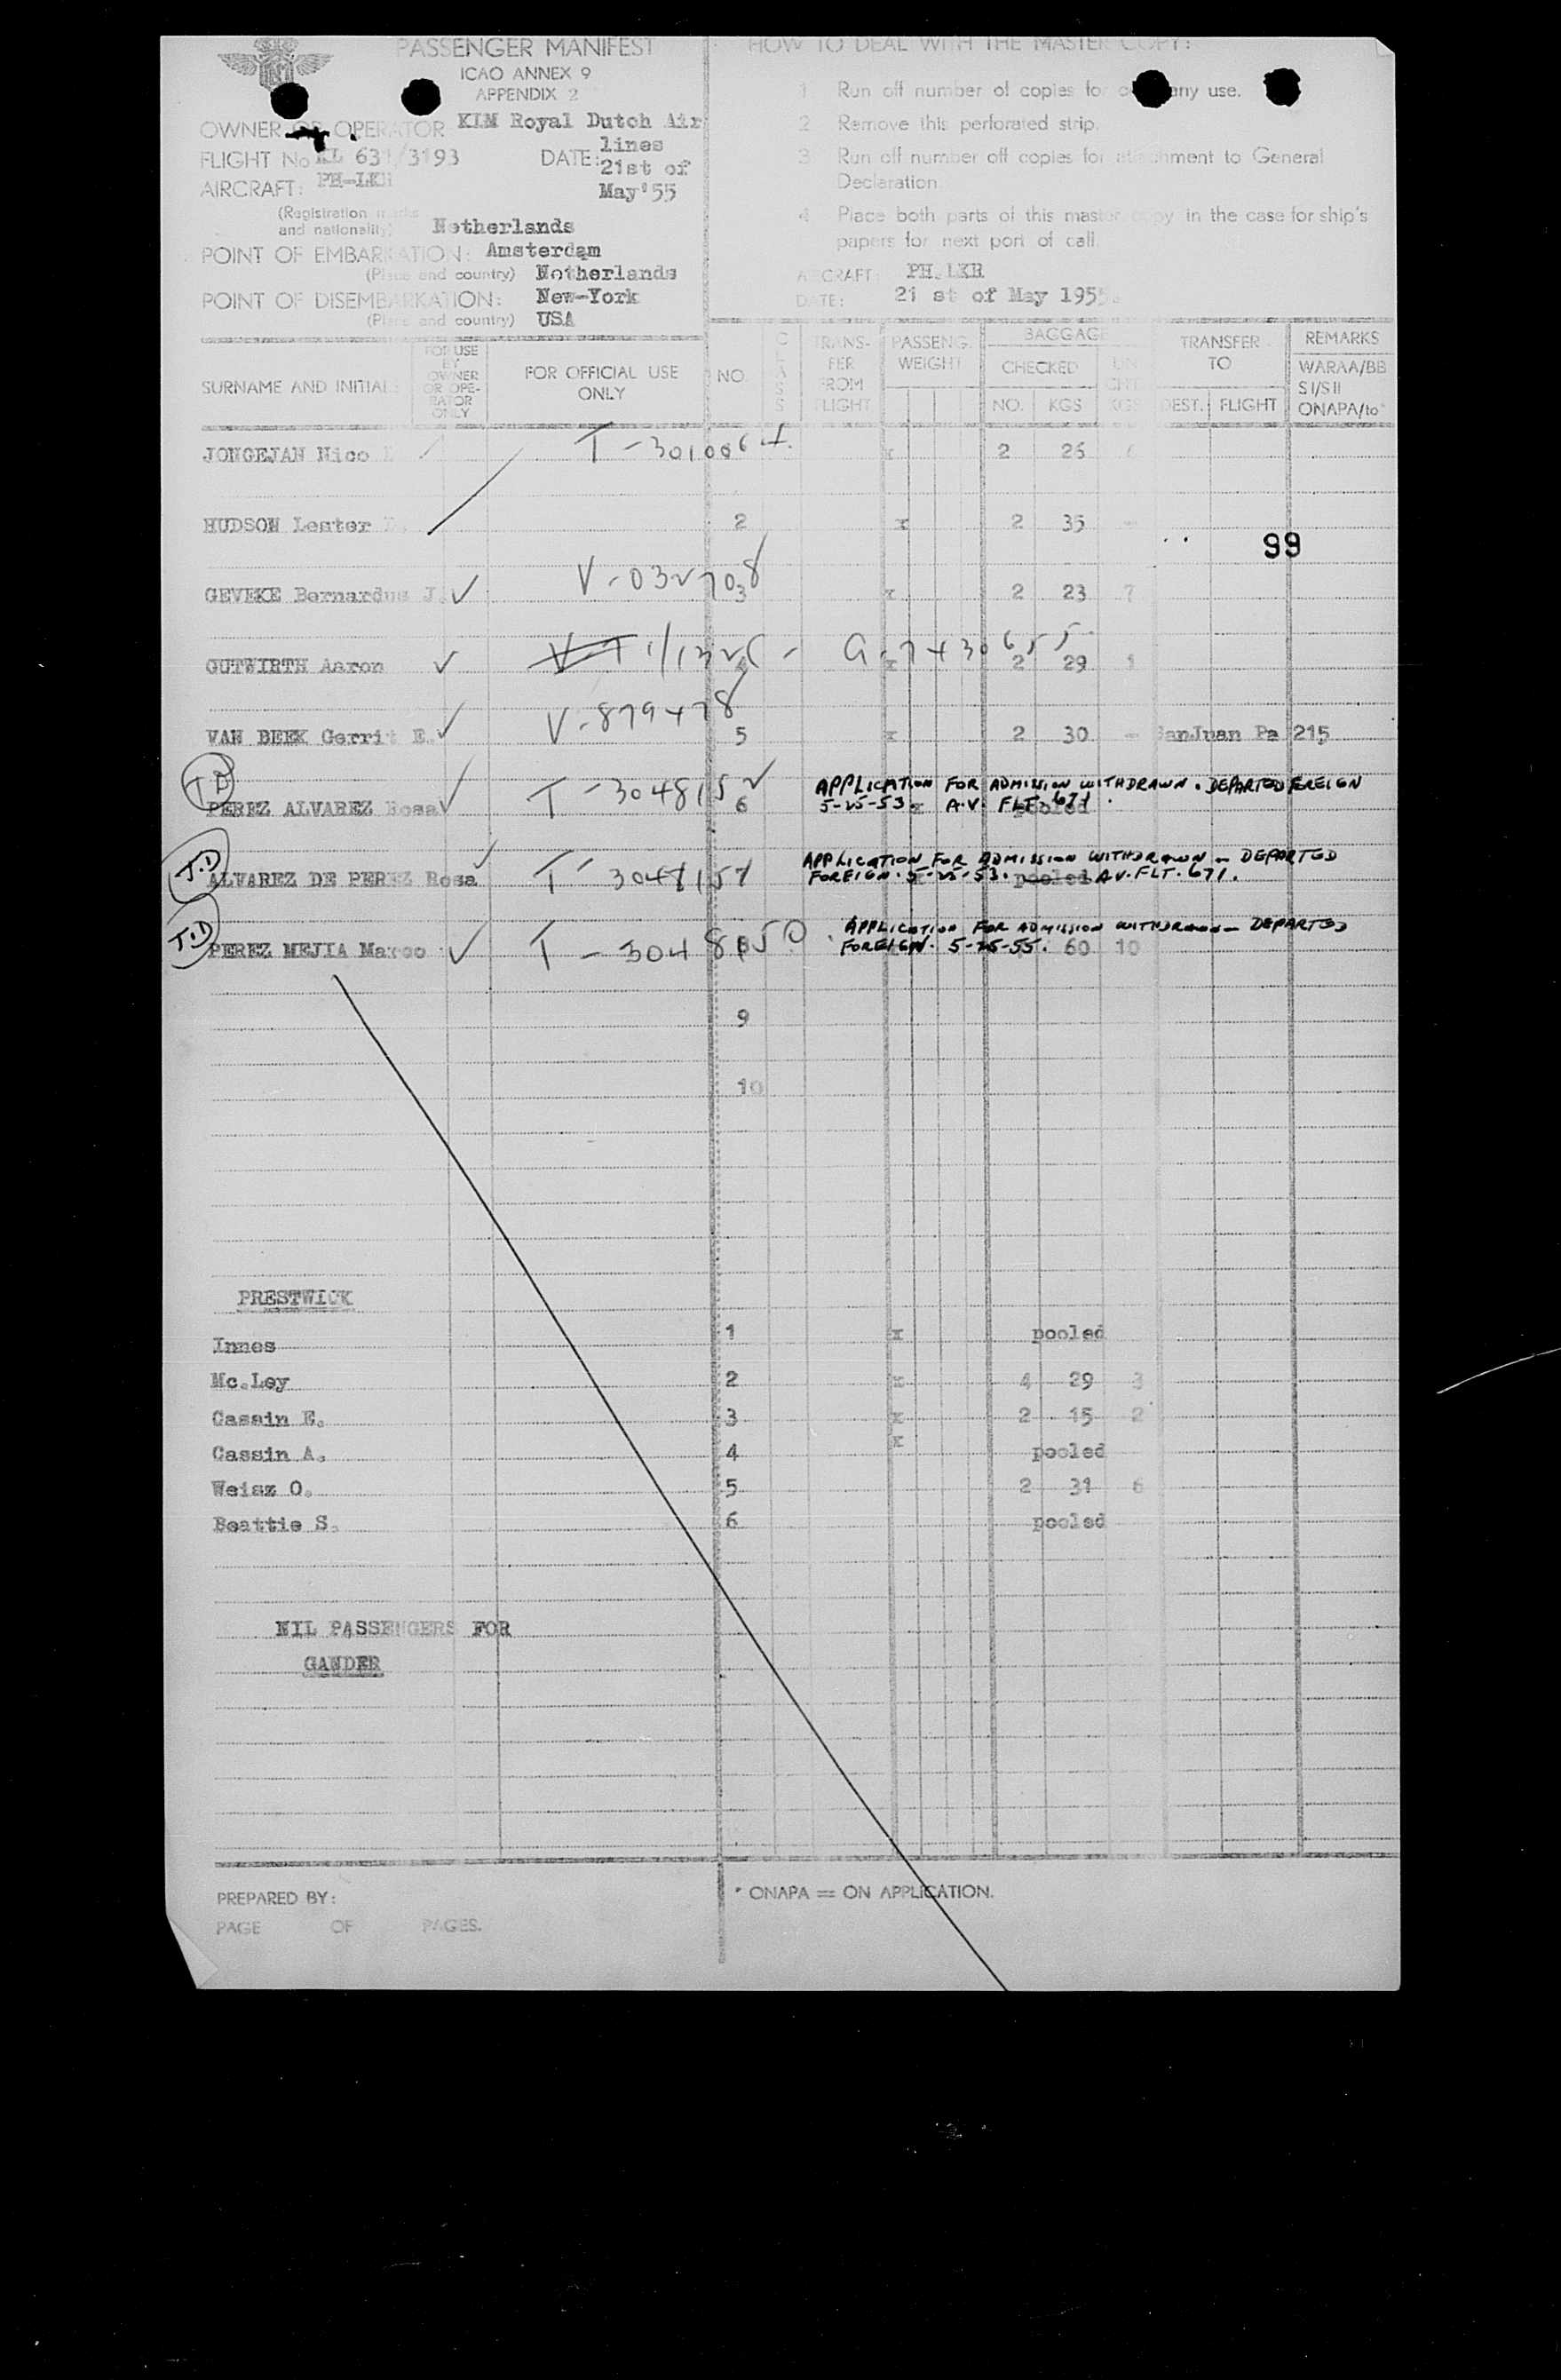 PASSENGER MANIFEST
ICAO ANNEX 9
APPENDIX 2
OWNER OR OPERATOR KLM Royal Dutch Air
lines
FLIGHT No KL 631/3193 DATE: 21st of
May'55
AIRCRAFT: PH-LKR
(Registration marks
and nationality) Netherlands
POINT OF EMBARKATION: Amsterdam
(Place and country) Netherlands
POINT OF DISEMBARKATION: New-York
(Place and country) USA
HOW TO DEAL WITH THE MASTER COPY:
1 Run off number of copies for company use.
2 Remove this perforated strip.
3 Run off number off copies for attachment to General
Declaration
4 Place both parts of this master copy in the case for ship's
papers for next port of call.
AIRCRAFT: PH.LKR
DATE: 21 st of May 1955.
SURNAME AND INITIALS FOR USE BY OWNER OR OPE-RATOR ONLY FOR OFFICIAL USE ONLY NO. CLASS TRANS-FER FROM FLIGHT PASSENG. WEIGHT BAGGAGE CHECKED NO. KGS UN CHE KGS TRANSFER TO DEST. FLIGHT REMARKS WARAA/BB SI/SII ONAPA/to*
JONGEJAN Nico T-301006 2 26
HUDSON Lester 2 x 2 35 -
99
GEVEKE Bernardus J. V-032708 3 x 2 23 7
GUTWIRTH Aaron x 2 29 1
VAN BEEK Gerrit E. V-879478 5 x 2 30 - SanJuan Pa 215
TD
PEREZ ALVAREZ Rosa T-304815 6 APPLICATION FOR ADMISSION WITHDRAWN. DEPARTED FOREIGN
5-25-53. A.V. FLT. 671. pooled
T.D
ALVAREZ DE PEREZ Rosa T-3048151 APPLICATION FOR ADMISSION WITHDRAWN - DEPARTED
FOREIGN. 5-25-53. pooled AV. FLT. 671.
T.D
PEREZ MEJIA Marco T-3048150 APPLICATION FOR ADMISSION WITHDRAWN - DEPARTED
FOREIGN. 5-25-55. 60 10
9
10
PRESTWICK
Innes 1 x pooled
Mc.Ley 2 x 4 29 3
Cassin E. 3 x 2 15 2
Cassin A. 4 x pooled
Weisz O. 5 2 31 6
Beattie S. 6 pooled
NIL PASSENGERS FOR
GANDER
PREPARED BY:
PAGE OF PAGES.
* ONAPA = ON APPLICATION.